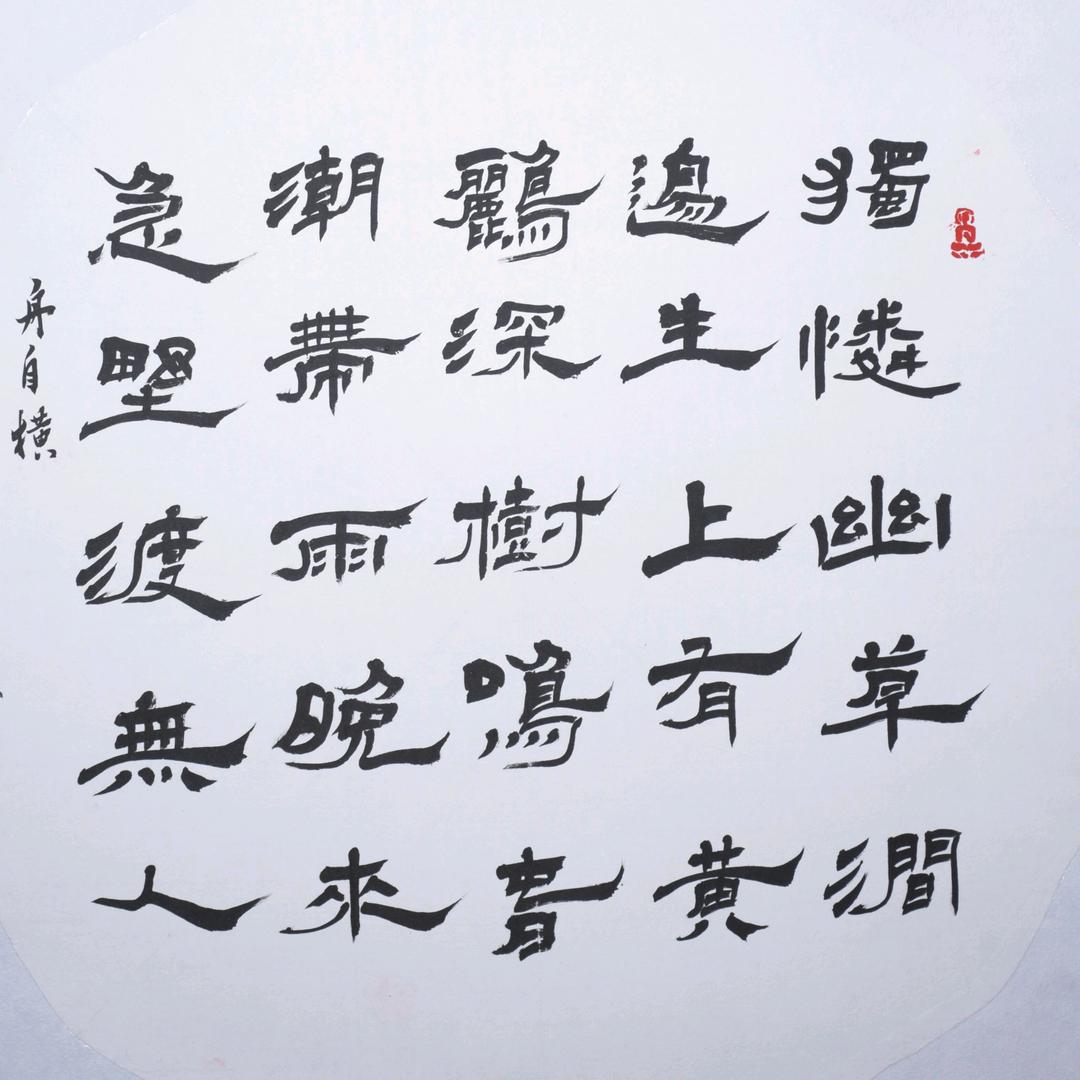 獨憐幽草澗
邊生上有黃
鸝深樹鳴春
潮帶雨晚來
急野渡無人
舟自橫